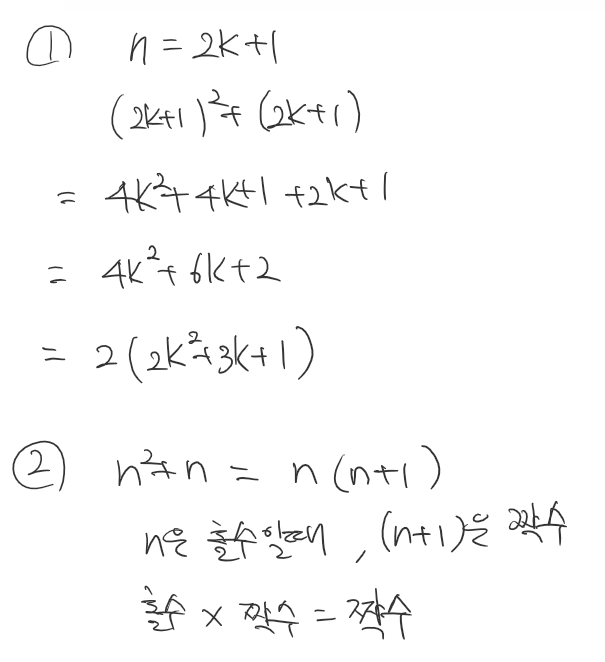 ① n = 2k+1
(2k+1)²+(2k+1)
= 4k²+4k+1+2k+1
= 4k²+6k+2
= 2(2k²+3k+1)
② n²+n = n(n+1)
n은 홀수일때, (n+1)은 짝수
홀수 × 짝수 = 짝수